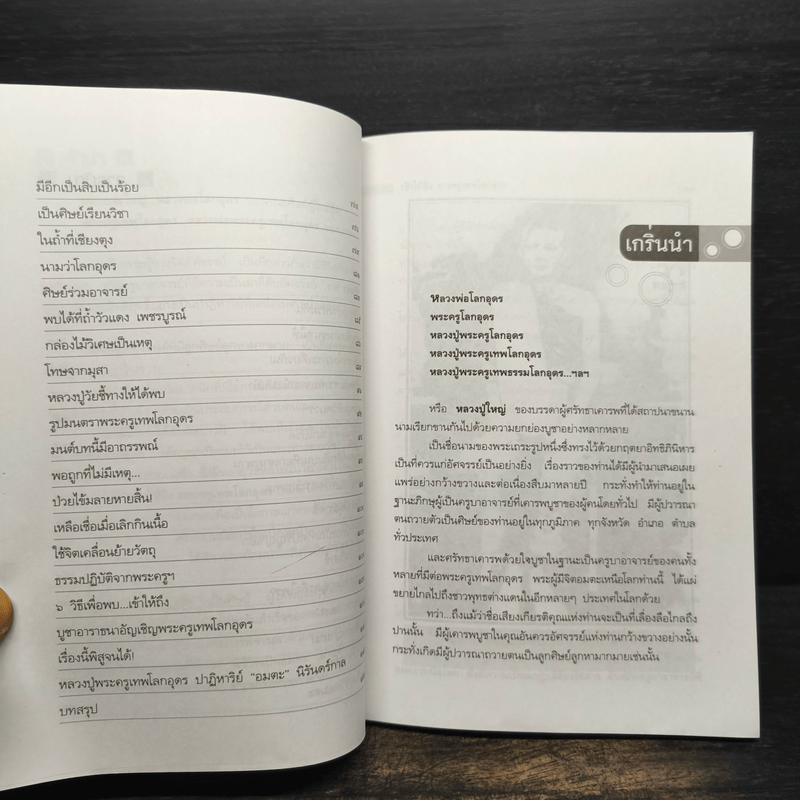 มีอีกเป็นสิบเป็นร้อย ๗๕
เป็นศิษย์เรียนวิชา ๗๖
ในถ้ำที่เชียงตุง ๗๙
นามว่าโลกอุดร
ศิษย์ร่วมอาจารย์
พบได้ที่ถ้ำวัวแดง เพชรบูรณ์
กล่องไม้วิเศษเป็นเหตุ
โทษจากมุสา
หลวงปู่วัยชี้ทางให้ได้พบ
รูปมนตราพระครูเทพโลกอุดร
มนต์บทนี้มีอาถรรพณ์
พอถูกที่ไม่มีเหตุ...
ป่วยไข้มลายหายสิ้น!
เหลือเชื่อเมื่อเลิกกินเนื้อ
ใช้จิตเคลื่อนย้ายวัตถุ
ธรรมปฏิบัติจากพระครูฯ
๖ วิธีเพื่อพบ...เข้าให้ถึง
บูชาอาราธนาอัญเชิญพระครูเทพโลกอุดร
เรื่องนี้พิสูจน์ได้!
หลวงปู่พระครูเทพโลกอุดร ปาฏิหาริย์ "อมตะ" นิรันดร์กาล
บทสรุป
เกริ่นนำ
หลวงพ่อโลกอุดร
พระครูโลกอุดร
หลวงปู่พระครูโลกอุดร
หลวงปู่พระครูเทพโลกอุดร
หลวงปู่พระครูเทพธรรมโลกอุดร...ฯลฯ
หรือ หลวงปู่ใหญ่ ของบรรดาผู้ศรัทธาเคารพที่ได้สถาปนาขนาน
นามเรียกขานกันไปด้วยความยกย่องบูชาอย่างหลากหลาย
เป็นชื่อนามของพระเถระรูปหนึ่งซึ่งทรงไว้ด้วยกฤตยาอิทธิภินิหาร
เป็นที่ควรแก่อัศจรรย์เป็นอย่างยิ่ง เรื่องราวของท่านได้มีผู้นำมาเสนอเผย
แพร่อย่างกว้างขวางและต่อเนื่องสืบมาหลายปี กระทั่งทำให้ท่านอยู่ใน
ฐานะภิกษุผู้เป็นครูบาอาจารย์ที่เคารพบูชาของผู้คนโดยทั่วไป มีผู้ปวารณา
ตนถวายตัวเป็นศิษย์ของท่านอยู่ในทุกภูมิภาค ทุกจังหวัด อำเภอ ตำบล
ทั่วประเทศ
และศรัทธาเคารพด้วยใจบูชาในฐานะเป็นครูบาอาจารย์ของคนทั้ง
หลายที่มีต่อพระครูเทพโลกอุดร พระผู้มีจิตอมตะเหนือโลกท่านนี้ ได้แผ่
ขยายไกลไปถึงชาวพุทธต่างแดนในอีกหลายๆ ประเทศในโลกด้วย
ทว่า...ถึงแม้ว่าชื่อเสียงเกียรติคุณแห่งท่านจะเป็นที่เลื่องลือไกลถึง
ปานนั้น มีผู้เคารพบูชาในคุณอันควรอัศจรรย์แห่งท่านกว้างขวางอย่างนั้น
กระทั่งเกิดมีผู้ปวารณาถวายตนเป็นลูกศิษย์ลูกหามากมายเช่นนั้น